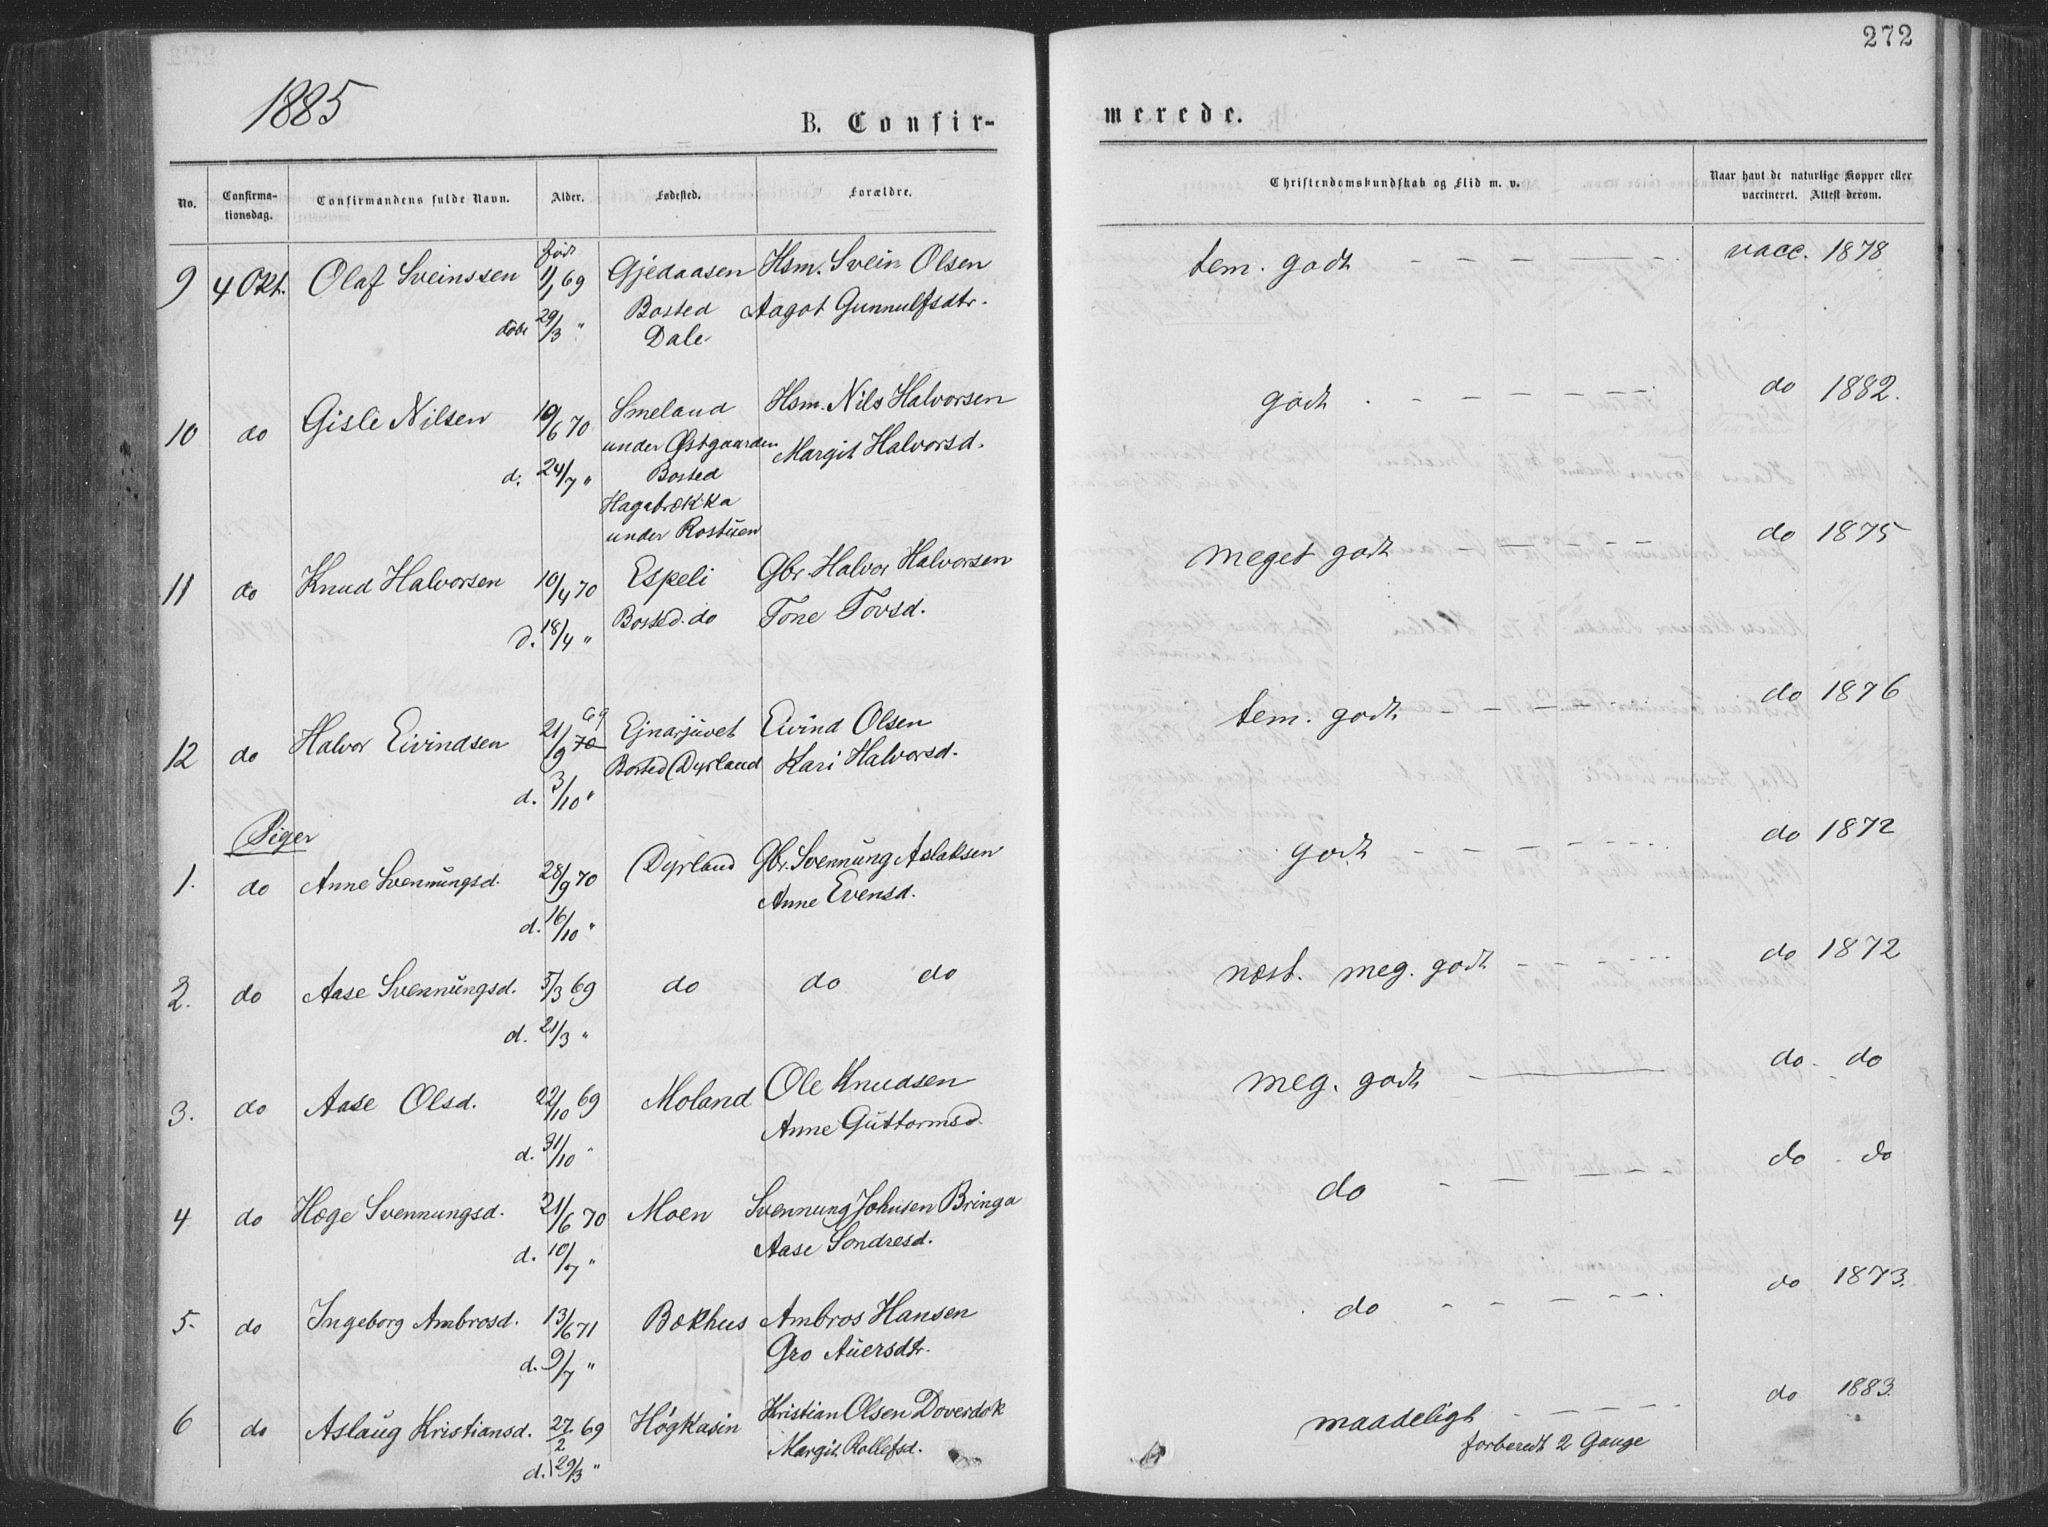 272
1885
B. Confir-
merede.
No.
Confirma-
tionsdag.
Confirmandens fulde Navn.
Alder.
Fødested.
Forældre.
Christendomskundskab og Flid m. v.
Naar havt de naturlige Kopper eller
vaccineret. Attest derom.
født
9 4 Okt. Olaf Sveinssen 11/1 69 Gjedaasen Hsm. Svein Olsen tem. godt - - - - - vacc. 1878
døbt 29/3 " Bosted Aagot Gunnulfsdtr.
Dale
10 do Gisle Nilsen 10/6 70 Smeland Hsm. Nils Halvorsen godt - - - - - do 1882.
under Østgaarden Margit Halvorsd.
d. 24/7 " Bosted
Hagabrækka
under Rostuen
11 do Knud Halvorsen 10/4 70 Espeli Gbr. Halvor Halvorsen meget godt - - - - do 1875
d. 18/4 " Bosted do Tone Tovsd.
69
12 do Halvor Eivindsen 21/9 70 Ejnarjuvet Eivind Olsen tem. godt - - - - do 1876
Bosted Dyrland Kari Halvorsd.
d. 3/10 "
Piger
1. do Anne Svennungsd. 28/9 70 Dyrland Gbr. Svennung Aslaksen godt - - - - - do 1872
d. 16/10 " Anne Evensd.
2. do Aase Svennungsd. 5/3 69 do do do næst. meg. godt - - - - do 1872
d. 21/3 "
3. do Aase Olsd. 22/10 69 Moland Ole Knudsen meg. godt - do - do
d. 31/10 " Anne Guttormsd.
4 do Hæge Svennungsd. 21/6 70 Moen Svennung Johnsen Bringa do - - - - - do - do
d. 10/7 " Aase Sondresd.
5. do Ingeborg Ambrosd. 13/6 71 Bækhus Ambros Hansen do - - - - - do 1873.
d. 9/7 " Gro Auersdtr.
6 do Aslaug Kristiansd. 27/2 69 Høgkasin Kristian Olsen Doverdok maadeligt - - - - do 1883.
d. 29/3 " Margit Rollefsd. forberedt 2 Gange